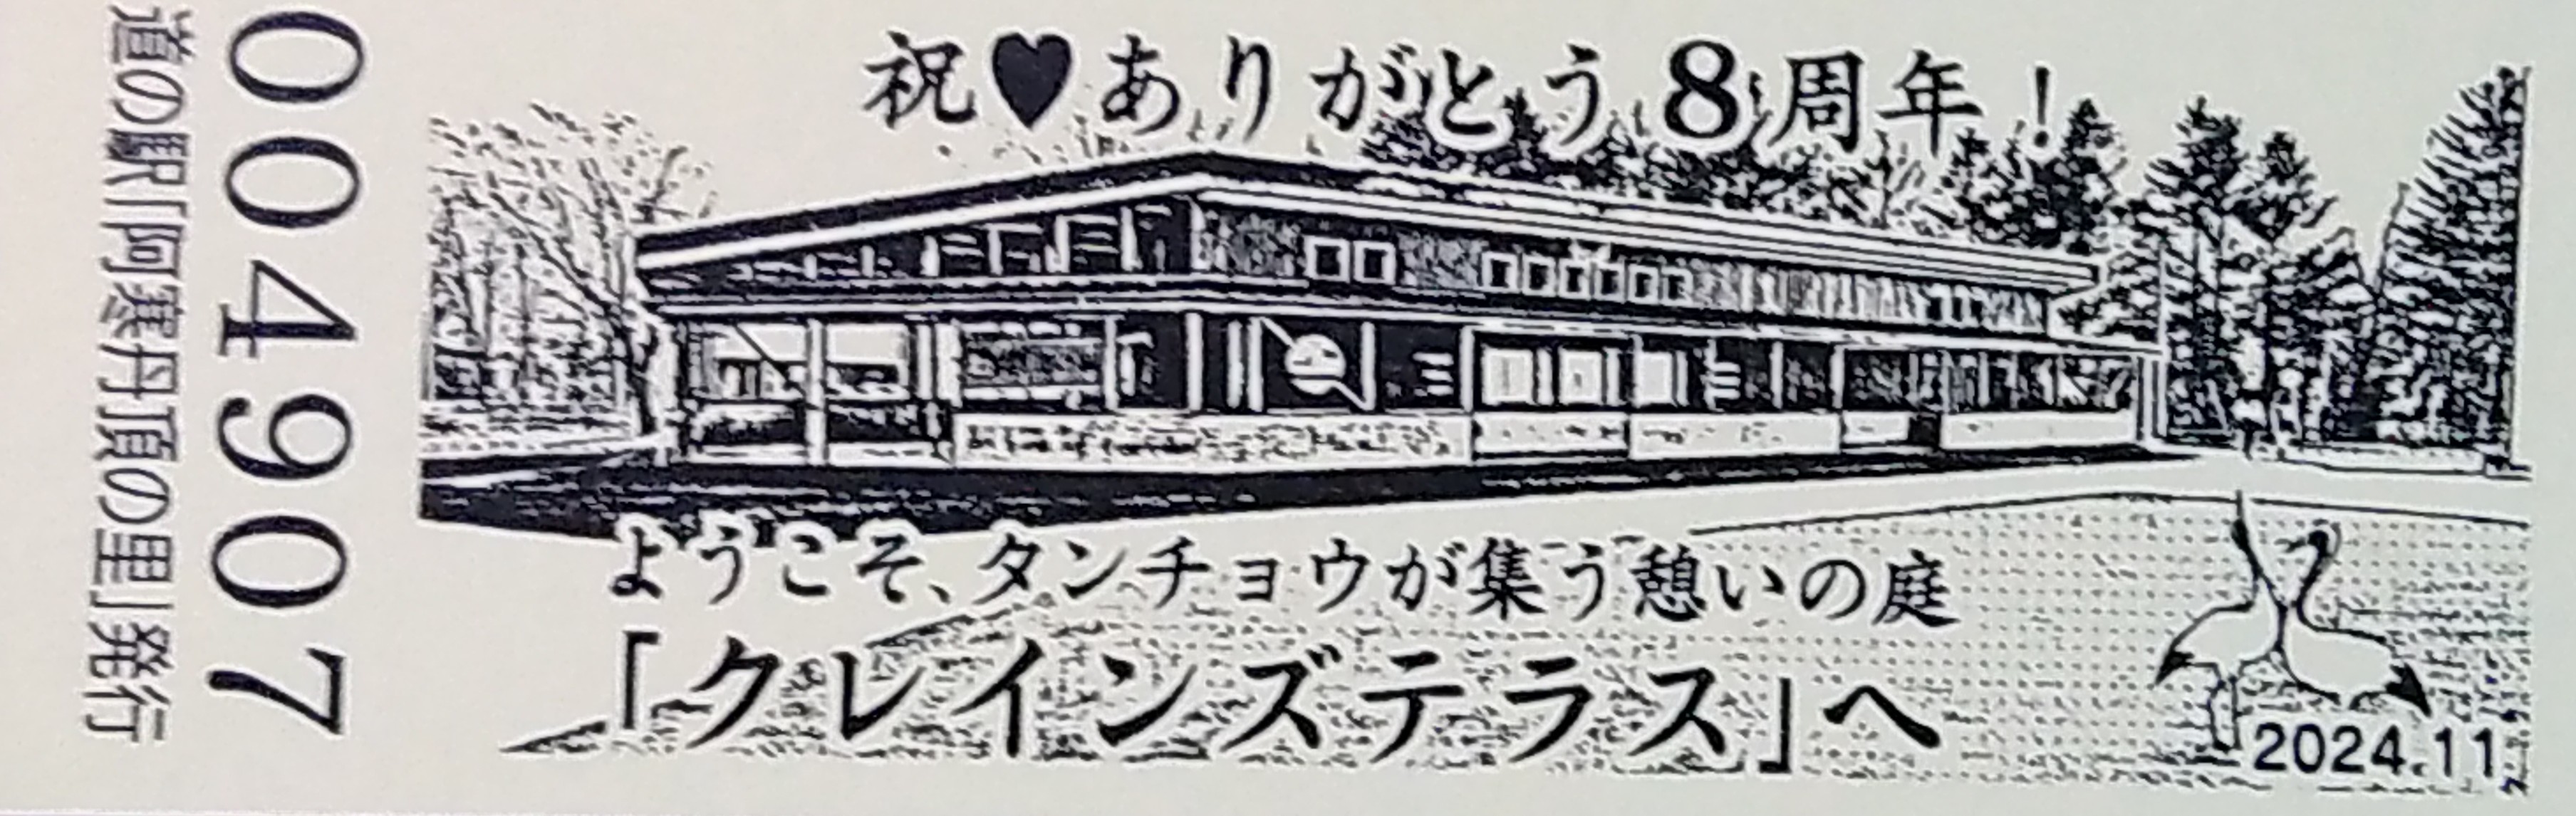 祝♥ありがとう8周年！
ようこそ、タンチョウが集う憩いの庭
「クレインズテラス」へ
2024.11
004907
道の駅「阿寒丹頂の里」発行